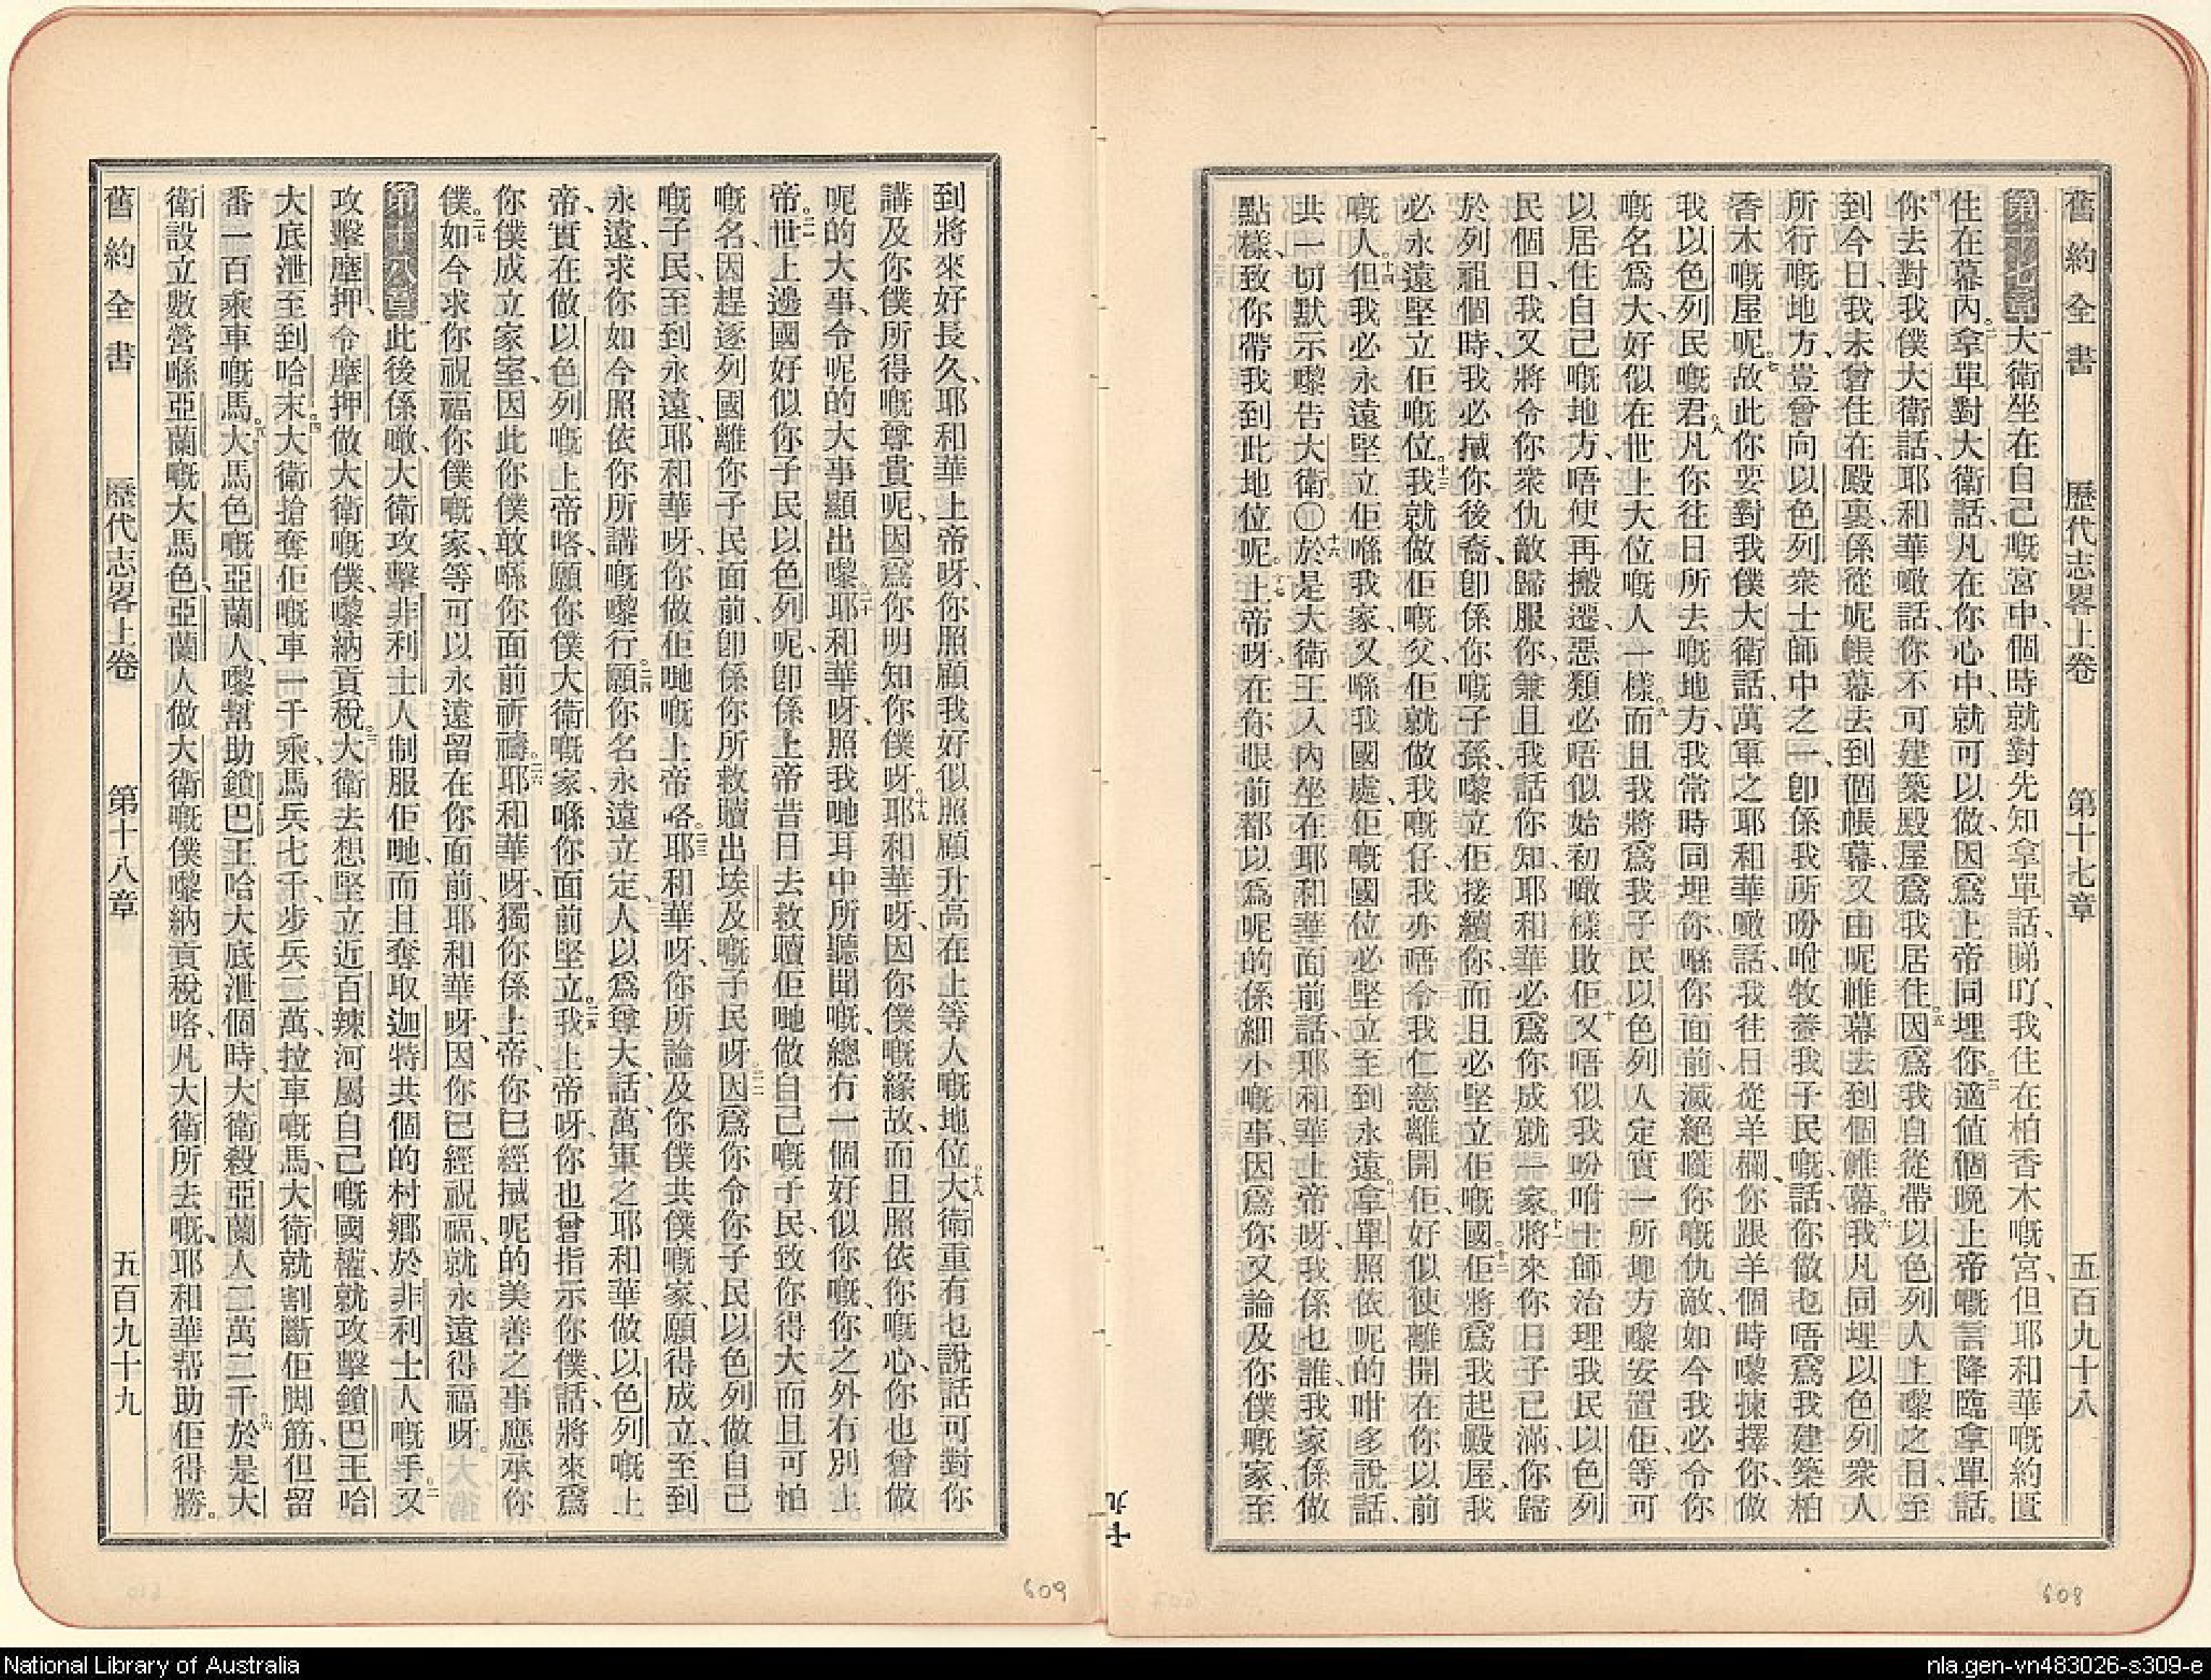 舊約全書 歷代志畧上卷 第十七章 五百九十八
第十七章 一大衛坐在自己嘅宮中、個時就對先知拿單話、睇吖、我住在柏香木嘅宮、但耶和華嘅約匨
住在幕內。二拿單對大衛話、凡在你心中、就可以做、因爲上帝同埋你。三適值個晚上帝嘅言降臨拿單話。
四你去對我僕大衛話、耶和華噉話、你不可建築殿屋爲我居住。五因爲我自從帶以色列人上嚟之日、至
到今日、我未曾住在殿裏、係從呢帳幕去到個帳幕、又由呢帷幕去到個帷幕。六我凡同埋以色列衆人
所行嘅地方、豈曾向以色列衆士師中之一、卽係我所吩咐牧養我子民嘅、話、你做乜唔爲我建築柏
香木嘅屋呢。七故此你要對我僕大衛話、萬軍之耶和華噉話、我往日從羊欄、你跟羊個時嚟揀擇你、做
我以色列民嘅君。八凡你往日所去嘅地方、我常時同埋你、喺你面前滅絕嘥你嘅仇敵、如今我必令你
嘅名爲大、好似在世上大位嘅人一樣。九而且我將爲我子民以色列人定實一所地方嚟安置佢、等可
以居住自己嘅地方、唔使再搬遷、惡類必唔似始初噉樣敗佢。十又唔似我吩咐士師治理我民以色列
民個日、我又將令你衆仇敵歸服你、兼且我話你知、耶和華必爲你成就一家。十一將來你日子已滿、你歸
於列祖個時、我必㨢你後裔、卽係你嘅子孫、嚟立佢接續你、而且必堅立佢嘅國。十二佢將爲我起殿屋、我
必永遠堅立佢嘅位。十三我就做佢嘅父、佢就做我嘅仔、我亦唔令我仁慈離開佢、好似使離開在你以前
嘅人。十四但我必永遠堅立佢喺我家、又喺我國處、佢嘅國位必堅立至到永遠。十五拿單照依呢的咁多說話、
共一切默示嚟告大衛。〇十六於是大衛王入內坐在耶和華面前、話、耶和華上帝呀、我係乜誰、我家係做
點樣、致你帶我到此地位呢。十七上帝呀、在你眼前都以爲呢的係細小嘅事、因爲你又論及你僕嘅家、至
十九
608
到將來好長久、耶和華上帝呀、你照顧我好似照顧升高在上等人嘅地位。十八大衛重有乜說話可對你
講及你僕所得嘅尊貴呢、因爲你明知你僕呀。十九耶和華呀、因你僕嘅緣故、而且照依你嘅心、你乜曾做
呢的大事、令呢的大事顯出嚟。二十耶和華呀、照我哋耳中所聽聞嘅、總冇一個好似你嘅、你之外冇別上
帝。二一世上邊國好似你子民以色列呢、卽係上帝昔日去救贖佢哋做自己嘅子民、致你得大而且可怕
嘅名、因趕逐列國離你子民面前、卽係你所救贖出埃及嘅子民呀。二二因爲你令你子民以色列做自己
嘅子民、至到永遠、耶和華呀、你做佢哋嘅上帝咯。二三耶和華呀、你所論及你僕共僕嘅家、願得成立、至到
永遠、求你如今照依你所講嘅嚟行。二四願你名永遠立定、人以爲尊大、話、萬軍之耶和華做以色列嘅上
帝、實在做以色列嘅上帝咯、願你僕大衛嘅家、喺你面前堅立。二五我上帝呀、你也曾指示你僕、話、將來爲
你僕成立家室、因此你僕敢喺你面前祈禱。二六耶和華呀、獨你係上帝、你已經㨢呢的美善之事應承你
僕。二七如今求你祝福你僕嘅家、等可以永遠留在你面前、耶和華呀、因你已經祝福、就永遠得福呀。
第十八章 一此後係噉、大衛攻擊非利士人、制服佢哋、而且奪取迦特共個的村鄉於非利士人嘅手。二又
攻擊摩押、令摩押做大衛嘅僕、嚟納貢稅。三大衛去想堅立近百辣河屬自己嘅國權、就攻擊鎖巴王哈
大底泄至到哈末。四大衛搶奪佢嘅車一千乘、馬兵七千、步兵二萬、拉車嘅馬、大衛就割斷佢脚筋、但留
番一百乘車嘅馬。五大馬色嘅亞蘭人、嚟幫助鎖巴王哈大底泄個時、大衛殺亞蘭人二萬二千。六於是大
衛設立數營喺亞蘭嘅大馬色、亞蘭人做大衛嘅僕嚟納貢稅咯、凡大衛所去嘅、耶和華帮助佢得勝。
舊約全書 歷代志畧上卷 第十八章 五百九十九
609
National Library of Australia
nla.gen-vn483026-s309-e